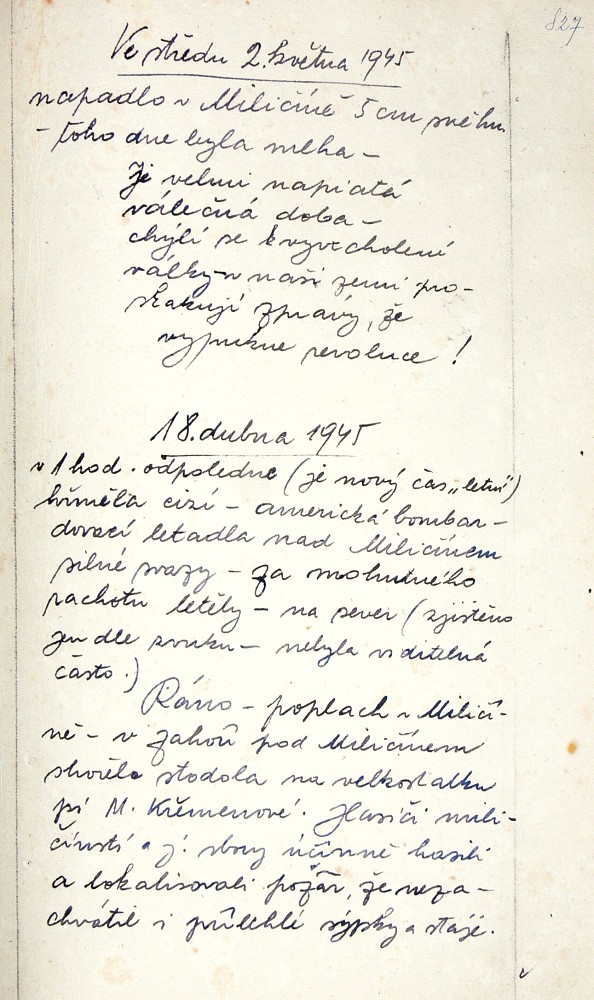 827
Ve středu 2. května 1945
napadlo v Miličíně 5 cm sněhu
- toho dne byla mlha -
Je velmi napiatá
válečná doba -
chýlí se k vyvrcholení
války - v naší zemi pro-
skakují zprávy, že
vypukne revoluce !
18. dubna 1945
v 1 hod. odpoledne (je nový čas „letní")
hřměla cizí - americká bombar-
dovací letadla nad Miličínem
silné svazy - za mohutného
rachotu letěly - na sever (zjištěno
jen dle zvuku - nebyla viditelná
často.)
Ráno - poplach v Miličí-
ně - v Záhoří pod Miličínem
shořela stodola na velkostatku
pí M. Křemenové. Hasiči mili-
čínští a j. sbory účinně hasili
a lokalisovali požár, že neza-
chvátil i přilehlé sýpky a stáje.